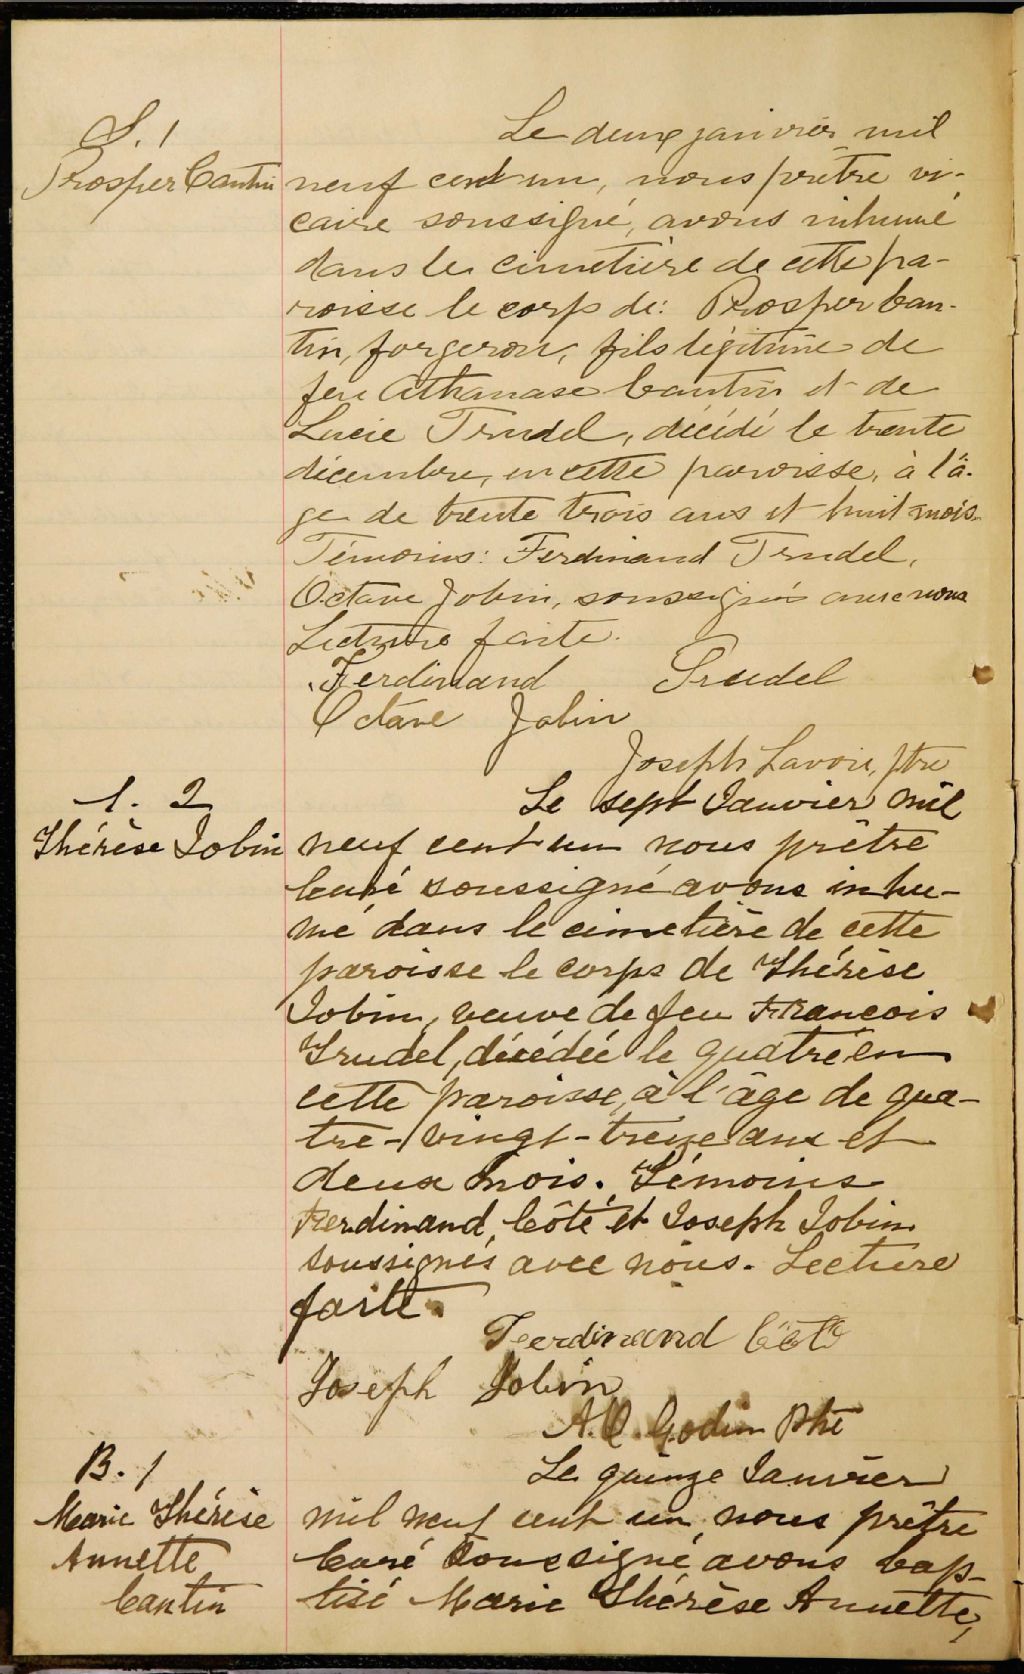 S. 1
Prosper Cantin
Le deux janvier mil
neuf cent un, nous prêtre vi-
caire soussigné, avons inhumé
dans le cimetière de cette pa-
roisse le corps de: Prosper Can-
tin, forgeron, fils légitime de
feu Athanase Cantin et de
Lucie Trudel, décédé le trente
décembre, en cette paroisse, à l'â-
ge de trente trois ans et huit mois.
Témoins: Ferdinand Trudel,
Octave Jobin, soussignés avec nous
Lecture faite.
Ferdinand Trudel
Octave Jobin
Joseph Lavoie, ptre
S. 2
Thérèse Jobin
Le sept Janvier mil
neuf cent un nous prêtre
Curé soussigné avons inhu-
mé dans le cimetière de cette
paroisse le corps de Thérèse
Jobin, veuve de feu Francois
Trudel, décédée le quatre en
cette paroisse, à l'âge de qua-
tre-vingt-treize ans et
deux mois. Témoins
Ferdinand Côté et Joseph Jobin
soussignés avec nous. Lecture
faite.
Ferdinand Côté
Joseph Jobin
A. O. Godin Ptre
B. 1
Marie Thérèse
Annette
Cantin
Le quinze Janvier
mil neuf cent un, nous prêtre
Curé soussigné, avons bap-
tisé Marie Thérèse Annette,